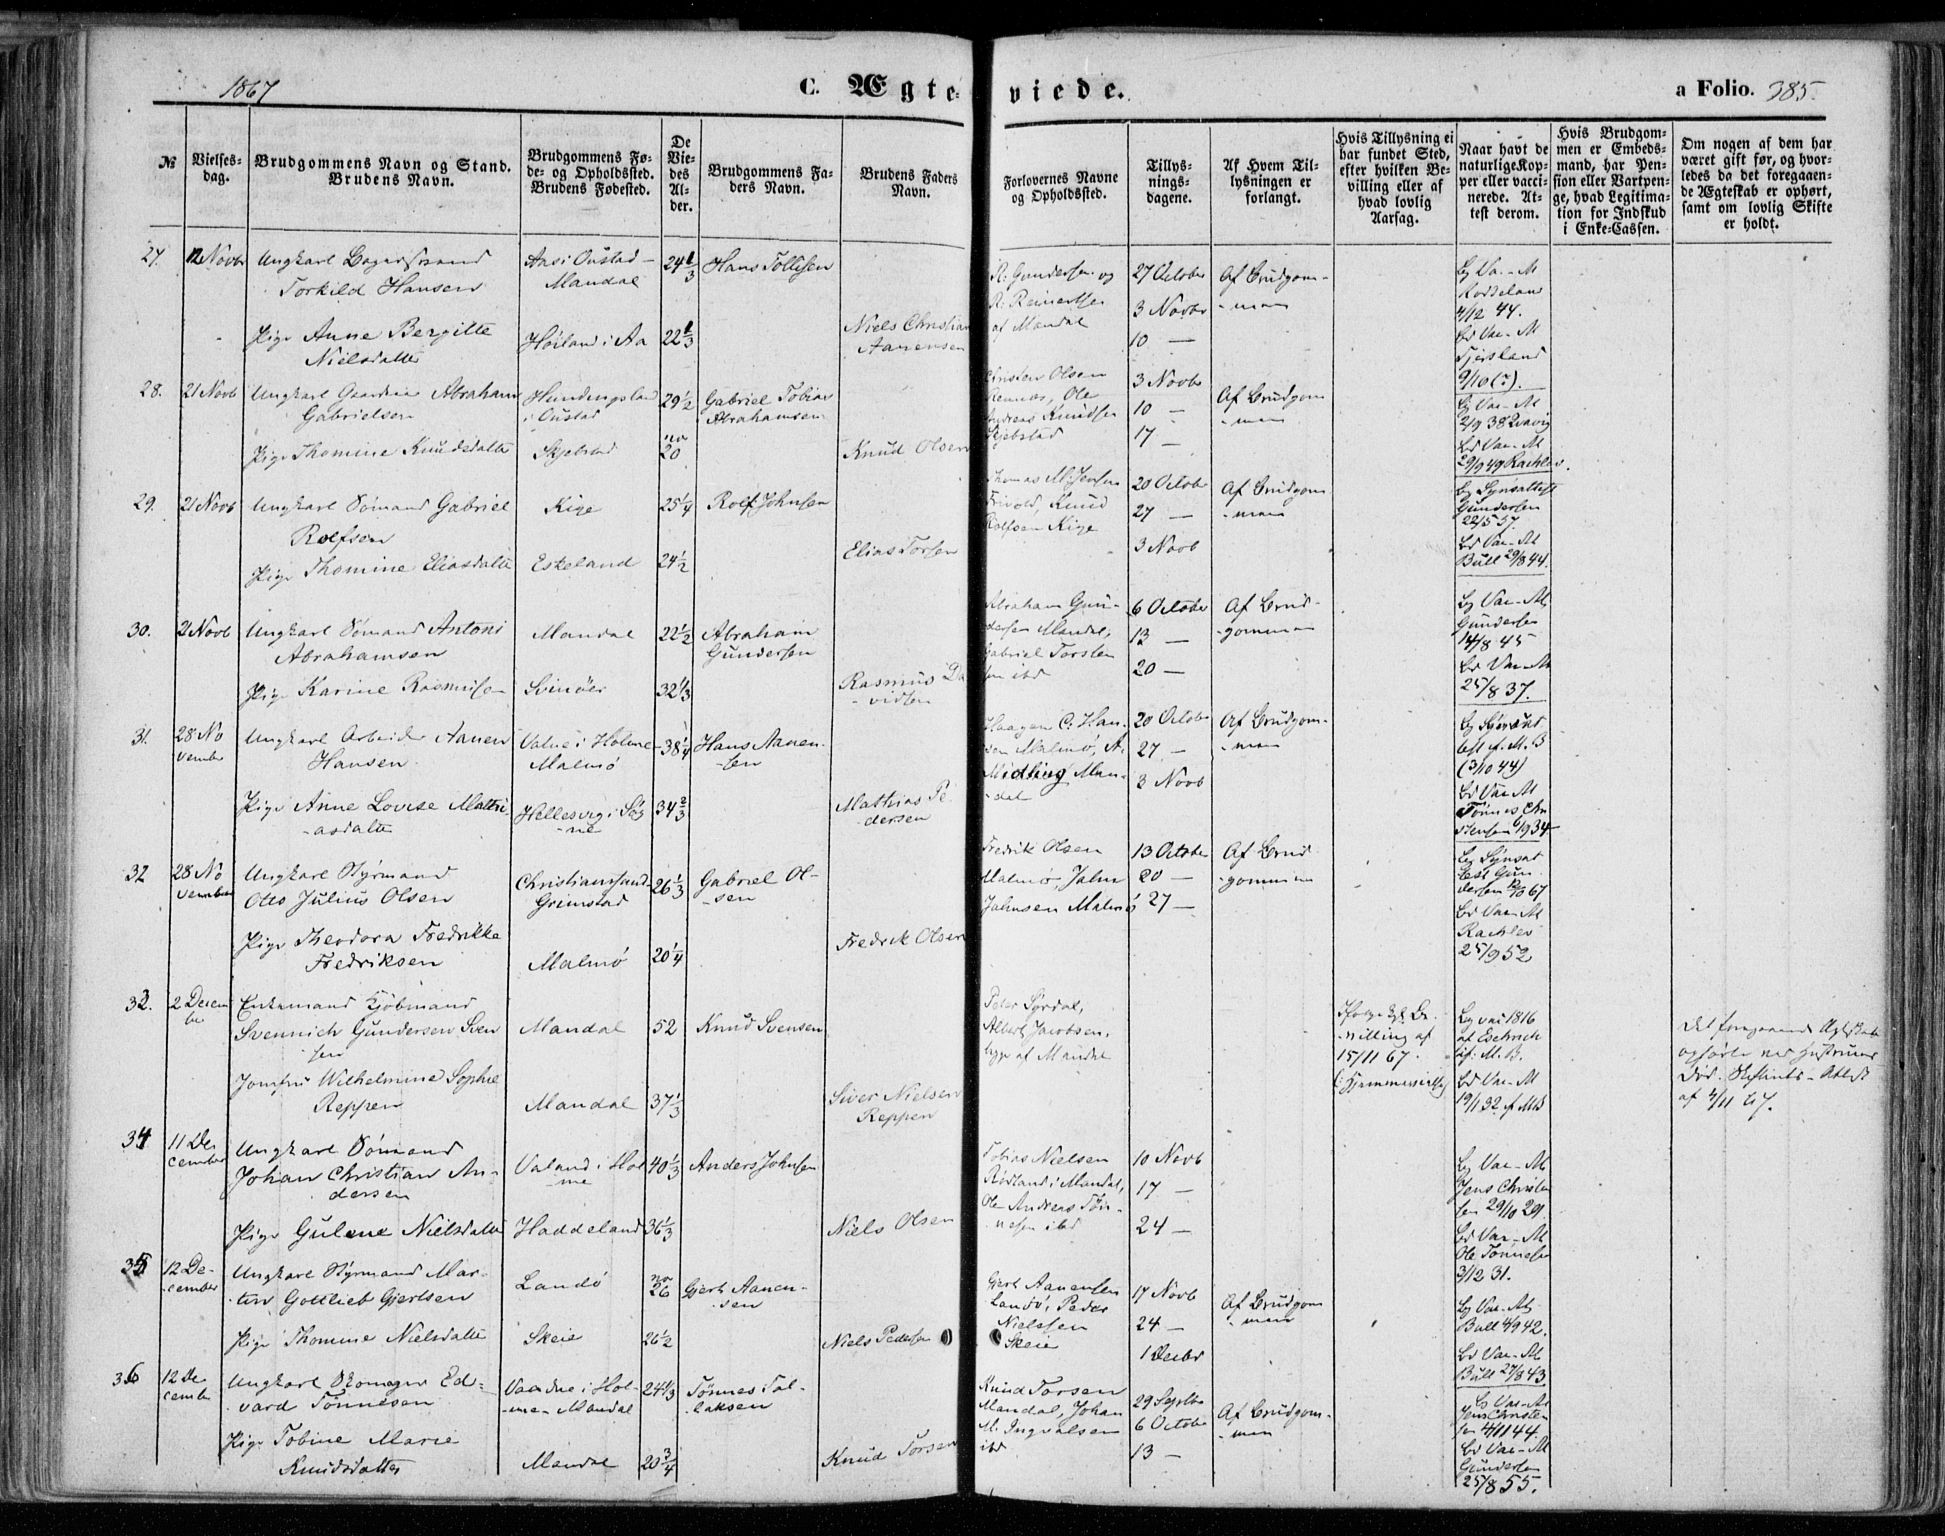 1867
C. Ægteviede.
a Folio. 385.
№
Vielses-
dag.
Brudgommens Navn og Stand.
Brudens Navn.
Brudgommens Fø-
de- og Opholdssted.
Brudens Fødested.
De
Vie-
des
Al-
der.
Brudgommens Fa-
ders Navn.
Brudens Faders
Navn.
Forlovernes Navne
og Opholdssted.
Tillys-
nings-
dagene.
Af Hvem Til-
lysningen er
forlangt.
Hvis Tillysning ei
har fundet Sted,
efter hvilken Be-
villing eller af
hvad lovlig
Aarsag.
Naar havt de
naturlige Kop-
per eller vacci-
nerede. At-
test derom.
Hvis Brudgom-
men er Embeds-
mand, har Pen-
sion eller Vartpen-
ge, hvad Legitima-
tion for Indskud
i Enke-Cassen.
Om nogen af dem har
været gift før, og hvor-
ledes da det foregaaen-
de Ægteskab er ophørt,
samt om lovlig Skifte
er holdt.
27. 12 Novbr Ungkarl
Torkild Hansen
Mandal
24 1/3
Hans Tollisen
R. Gundersen og
R. Reinertsen
af Mandal
27 October
3 Novbr
10 —
Af Brudgom-
-men
Pige Anne Bergitte
Nielsdatter
Høiland i Aa
22 1/3
Niels Christian
Aanensen
28. 21 Novb Ungkarl Gaardm Abraham
Gabrielsen
i Oustad
29 1/2
Gabriel Tobias
Abrahamsen
Christen Olsen
Ole
Andreas Knudsen
Skjebstad
3 Novbr
10 —
17 —
Af Brudgom
-men
Pige Thomine Knudsdatter
Skjebstad
20
Knud Olsen
29. 21 Novb Ungkarl Sømand Gabriel
Rolfsen
Kige
25 1/4
Rolf Johnsen
Thomas M. Jensen
Frivold, Knud
Rolfsen Kige
20 October
27 —
3 Novb
Af Brudgom
-men
Gundersen
22/5 57.
Bd Vac-At
Bull 29/8 44.
Pige Thomine Eliasdatter
Eskeland
24 1/2
Elias Torsen
30. 21 Novb Ungkarl Sømand Antoni
Abrahamsen
Mandal
22 1/2
Abraham
Gundersen
Abraham Gun-
dersen Mandal,
Gabriel Torsten
sen ibd
6 October
13 —
20 —
Af Brud-
-gommen
Bg Vac-At
Gundersen
14/8 45
Bd Vac-At
25/8 37.
Pige Karine Rasmusse-
Svinøer
32 1/3
Rasmus Da
-vidsen
31. 28 No
vember
Ungkarl Arbeider Aanen
Hansen
Valne i Holme-
Malmø
38 1/4
Hans Aanen-
-sen
Haagen C. Han-
sen Malmø, A.
Midling Man-
-dal
20 October
27 —
3 Novb
Af Brudgom-
-men
(3/10 44)
Bd Vac-At
Tønnes Chri
stensen
Pige Anne Lovise Mathi-
-asdatter
Hellesvig i Søg
-ne
34 2/3
Mathias Pe
-dersen
32 28 No
vember
Ungkarl Styrmand
Otto Julius Olsen
Christianssand
Grimstad
26 1/3
Gabriel Ol-
-sen
Fredrik Olsen
Malmø, Jahn
Jahnsen Malmø
13 October
20 —
27 —
Af Brud
-gommen
Bg Synsat
test Gun
dersen
Bd Vac-At
Rachlev
25/9 52
Pige Theodora Fredrikke
Fredriksen
Malmø
20 1/4
Fredrik Olsen
33. 2 Decem
ber
Enkemand Kjøbmand
Svennich Gundersen Sven
sen
Mandal
52
Knud Svensen
Peter Sørdal,
Albert Jacobsen,
begge af Mandal
Ifølge Kgl. Be-
-villing af
15/11 67.
(Hjemmevielse)
Bg vac 1816
af Eschrich
if. M.B.
Bd Vac-At
19/1 32 if MB
Det foregaaende Ægteskab
ophørte ved Hustruens
Død. Skifterets-Attest
af 7/11 67.
Jomfru Wilhelmine Sophie
Reppen
Mandal
37 1/3
Siver Nielsen
Reppen
34 11 De
cember
Ungkarl Sømand
Johan Christian An-
dersen
Valand i Hol
-me
40 1/3
Anders Johnsen
Tobias Nielsen
Rødland i Mandal,
Ole Andreas Tøn-
nesen ibd
10 Novb
17 —
24 —
Bg Vac-At
Jens Christen
sen 29/10 29.
Bd Vac-At
Ole Tønnesen
3/12 31.
Pige Gulene Nielsdatter
Haddeland
36 1/3
Niels Olsen
35 12 De-
cember
Ungkarl Styrmand Mar-
tin Gottlieb Gjertsen
Landø
26
Gjert Aanen-
-sen
Gjert Aanensen
Landø, Peder
Nielssen
Skeie
17 Novb
24 —
1 Decbr
Af Brudgom
-men
Bg Vac-At
Bull 4/9 42.
Bd Vac-At
Bull 27/8 43.
Pige Thomine Nielsdatter
Skeie
26 1/2
Niels Pedersen
36 12 De
cember
Ungkarl Skomager Ed-
vard Tønnesen
Vaadne i Hol-
-me- Mandal
24 1/3
Tønnes Tol-
-laksen
Knud Torsen
Mandal, Johan
M. Ingvalsen
ibd
29 Septbr
6 October
13 —
Af Brudgom-
-men
Bg Vac-At
Jens Christen
sen 4/11 44.
Bd Vac-At
Gundersen
25/8 55.
Pige Tobine Marie
Knudsdatter
Mandal
20 3/4
Knud Torsen